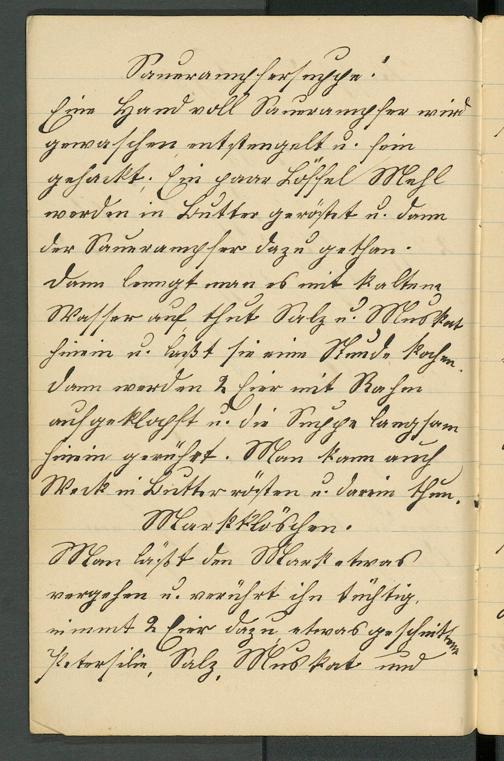 Sauerampfersuppe!
Eine Hand voll Sauerampfer wird
gewaschen entstengelt u. fein
gehackt. Ein paar Löffel Mehl
werden in Butter geröstet u. dann
der Sauerampfer dazu gethan.
Dann man es mit kaltem
Wasser auf, thut Salz u. Muskat
hinein u. läßt sie eine Stunde kochen.
Dann werden 2 Eier mit Rahm
aufgeklopft u. die Suppe langsam
hinein gerührt. Man kann auch
Weck in Butter rösten u. darein thun.
Markklöschen.
Man läßt den Mark etwas
vergehen u. verührt ihn tüchtig,
nimmt 2 Eier dazu etwas geschnittene
Petersilie, Salz, Muskat und